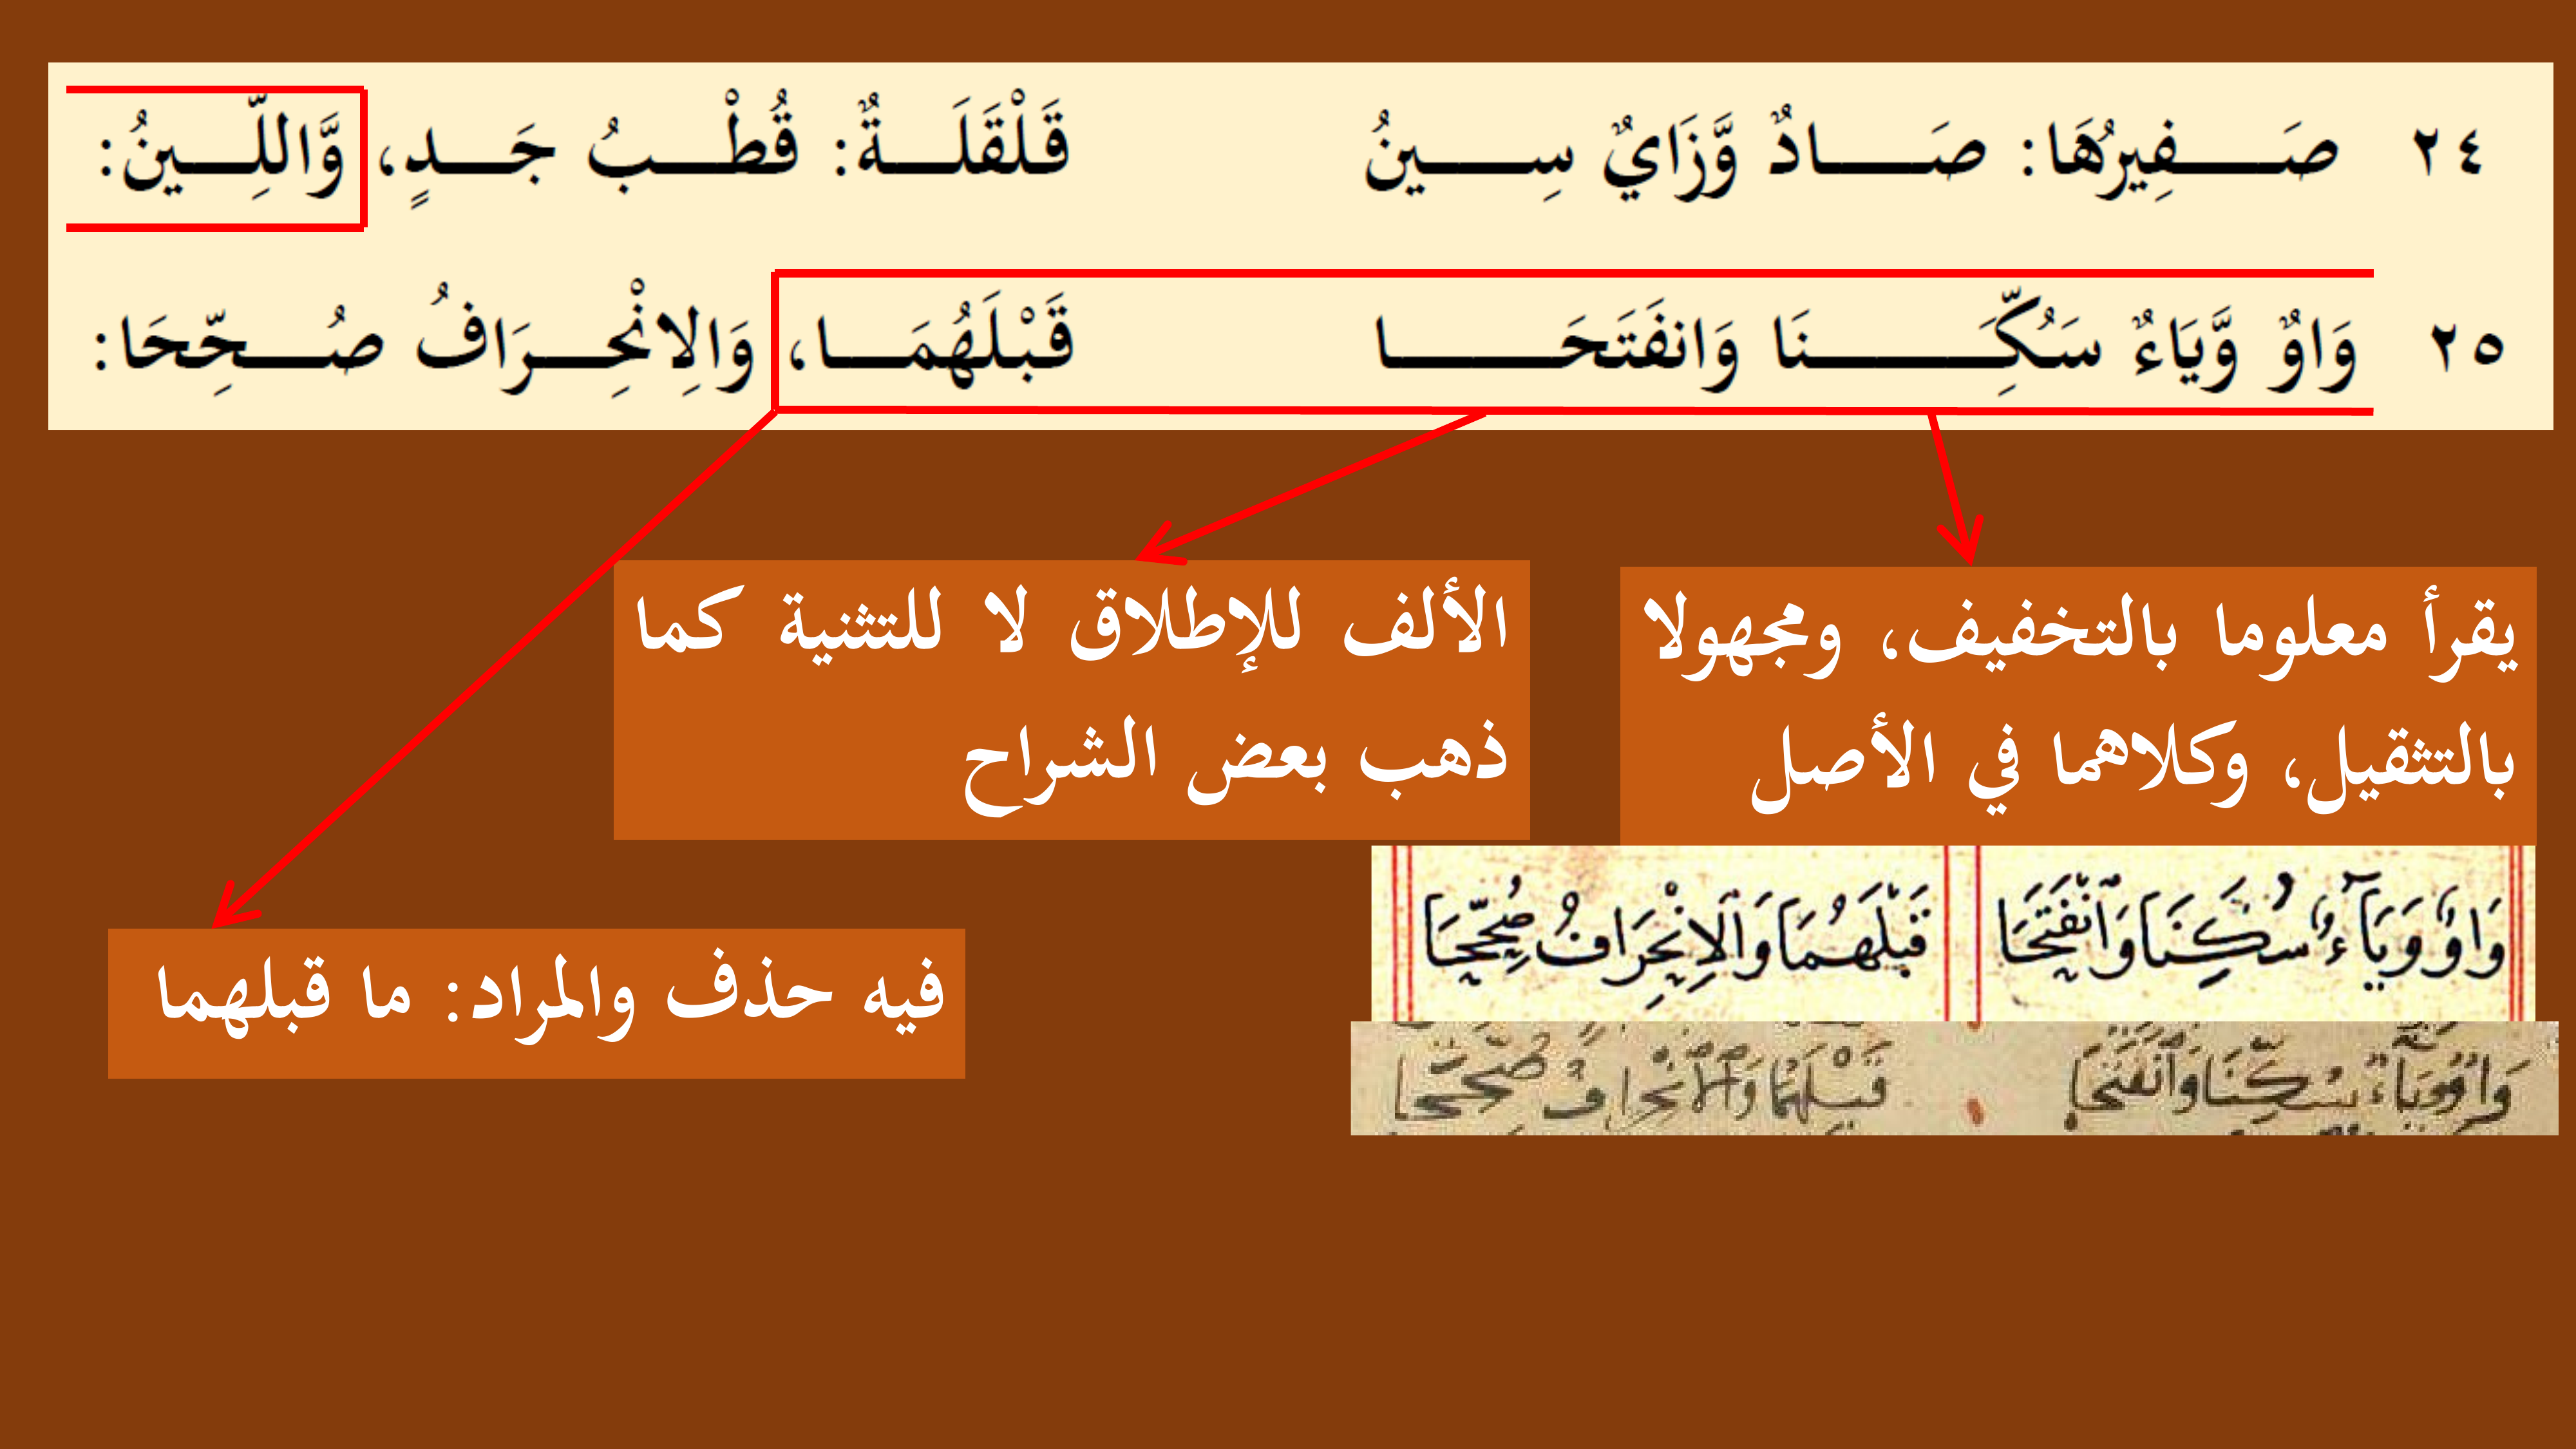 ٢٤ صَـــفِيرُهَا: صَـــادٌ وَّزَايٌ سِـــينُ قَلْقَلَـــةٌ: قُطْـــبُ جَـــدٍ، وَّاللِّـــينُ:
٢٥ وَاوٌ وَّيَاءٌ سَُكِّـَـــنَا وَانفَتَحَـــا قَبْلَهُمَـــا، وَالِانْحِـــرَافُ صُـــحِّحَا:
يقرأ معلوما بالتخفيف، ومجهولا
بالتثقيل، وكلاهما في الأصل
الألف للإطلاق لا للتثنية كما
ذهب بعض الشراح
وَاوٌ وَيَآءٌ سُكِّنَا وَٱنْفَتَحَا قَبْلَهُمَا وَٱلِانْحِرَافُ صُحِّحَا
فيه حذف والمراد: ما قبلهما
وَاوٌ وَيَاءٌ سُكِّنَا وَٱنْفَتَحَا قَبْلَهُمَا وَٱلِانْحِرَافُ صُحِّحَا